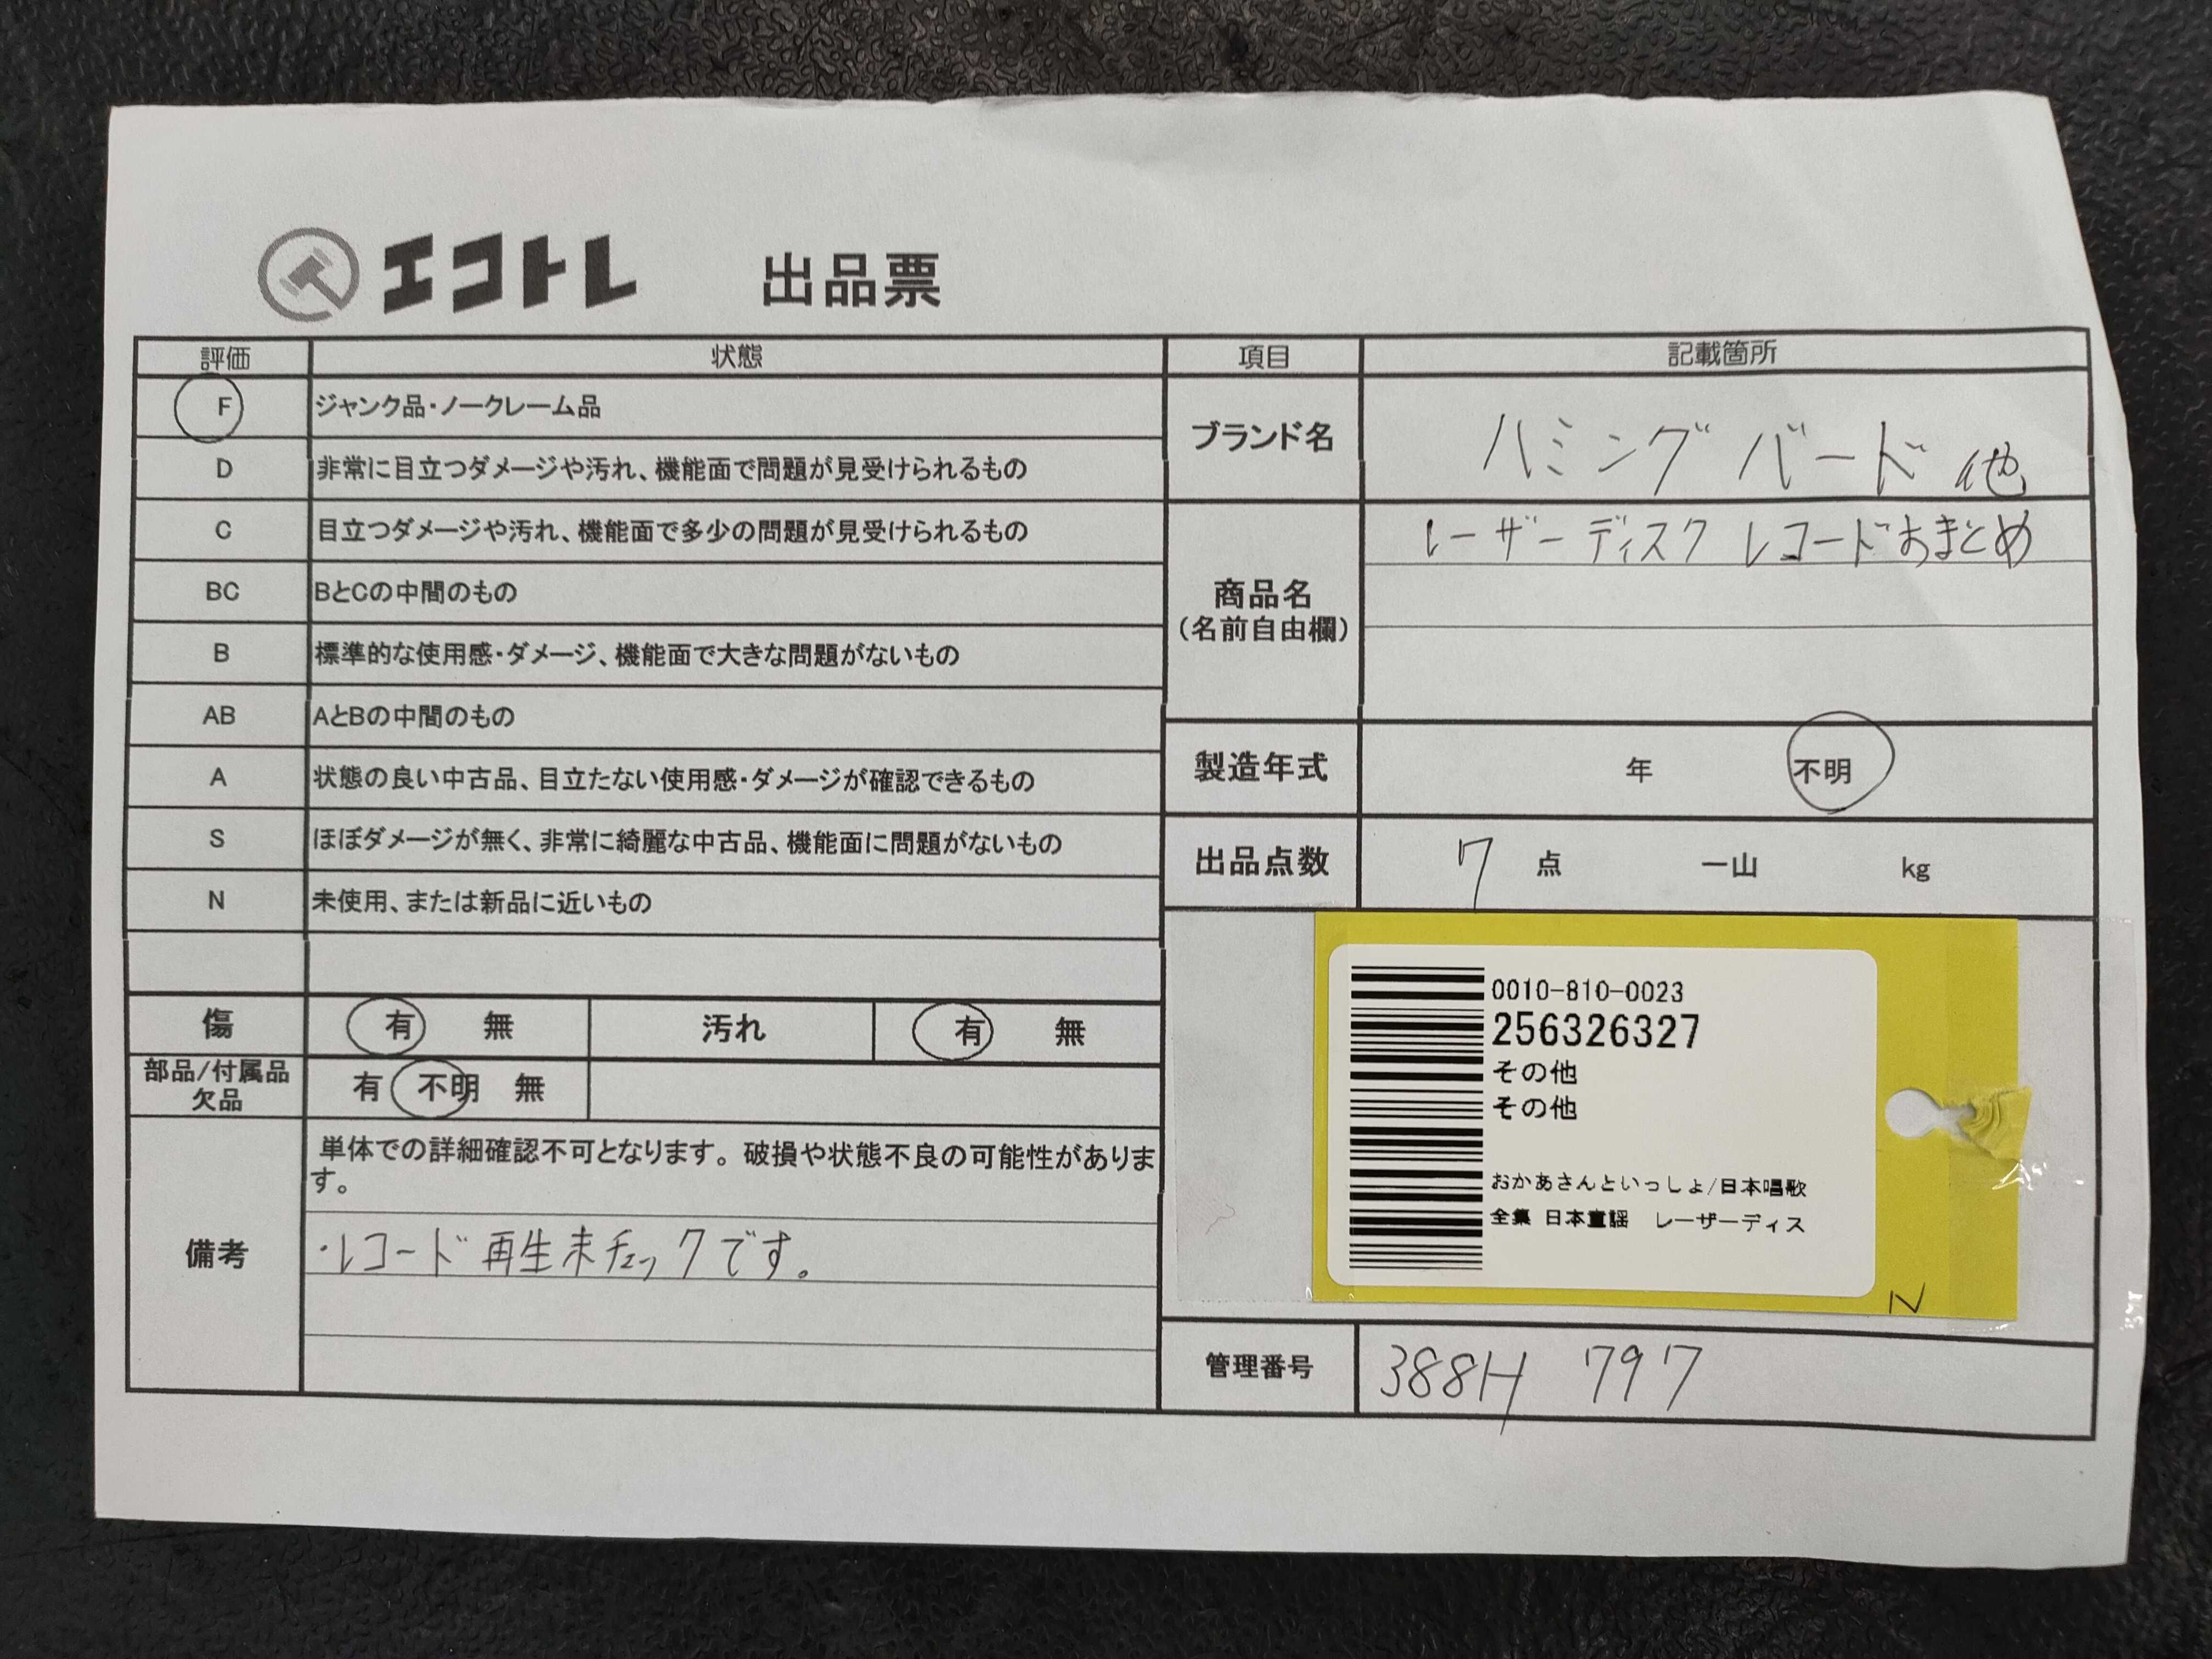 エコトレ 出品票
評価 状態
F ジャンク品・ノークレーム品
D 非常に目立つダメージや汚れ、機能面で問題が見受けられるもの
C 目立つダメージや汚れ、機能面で多少の問題が見受けられるもの
BC BとCの中間のもの
B 標準的な使用感・ダメージ、機能面で大きな問題がないもの
AB AとBの中間のもの
A 状態の良い中古品、目立たない使用感・ダメージが確認できるもの
S ほぼダメージが無く、非常に綺麗な中古品、機能面に問題がないもの
N 未使用、または新品に近いもの
傷 有 無 汚れ 有 無
部品/付属品
欠品
有 不明 無
備考
単体での詳細確認不可となります。破損や状態不良の可能性がありま
す。
・レコード再生未チェックです。
項目 記載箇所
ブランド名 ハミングバード 他
商品名
(名前自由欄)
レーザーディスク レコードおまとめ
製造年式 年 不明
出品点数 7 点 一山 kg
0010-810-0023
256326327
その他
その他
おかあさんといっしょ/日本唱歌
全集 日本童謡 レーザーディス
N
管理番号 388H 797